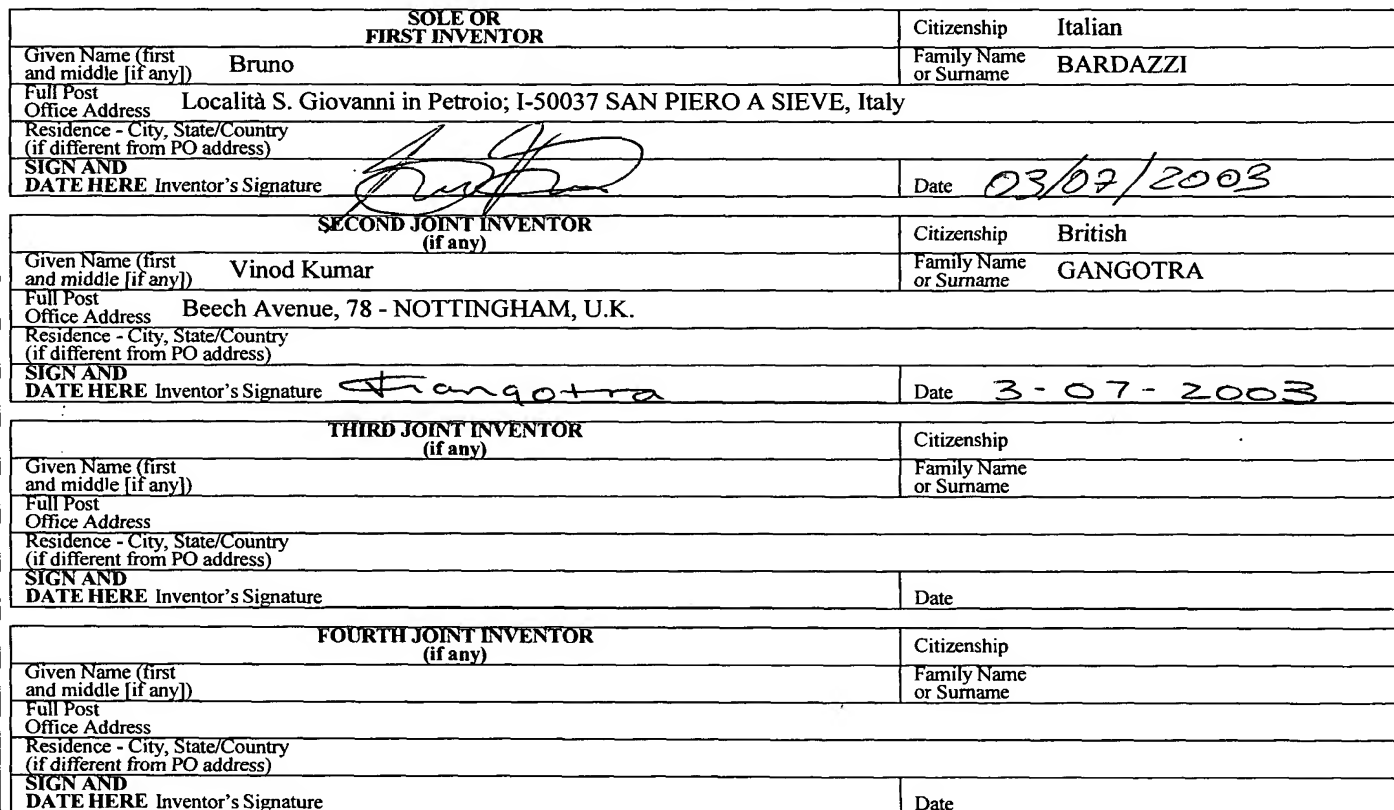 SOLE OR
FIRST INVENTOR
Citizenship Italian
Given Name (first
and middle [if any]) Bruno
Family Name
or Surname BARDAZZI
Full Post
Office Address Località S. Giovanni in Petroio; I-50037 SAN PIERO A SIEVE, Italy
Residence - City, State/Country
(if different from PO address)
SIGN AND
DATE HERE Inventor's Signature
Date 03/07/2003
SECOND JOINT INVENTOR
(if any)
Citizenship British
Given Name (first
and middle [if any]) Vinod Kumar
Family Name
or Surname GANGOTRA
Full Post
Office Address Beech Avenue, 78 - NOTTINGHAM, U.K.
Residence - City, State/Country
(if different from PO address)
SIGN AND
DATE HERE Inventor's Signature
Date 3-07-2003
THIRD JOINT INVENTOR
(if any)
Citizenship
Given Name (first
and middle [if any])
Family Name
or Surname
Full Post
Office Address
Residence - City, State/Country
(if different from PO address)
SIGN AND
DATE HERE Inventor's Signature
Date
FOURTH JOINT INVENTOR
(if any)
Citizenship
Given Name (first
and middle [if any])
Family Name
or Surname
Full Post
Office Address
Residence - City, State/Country
(if different from PO address)
SIGN AND
DATE HERE Inventor's Signature
Date